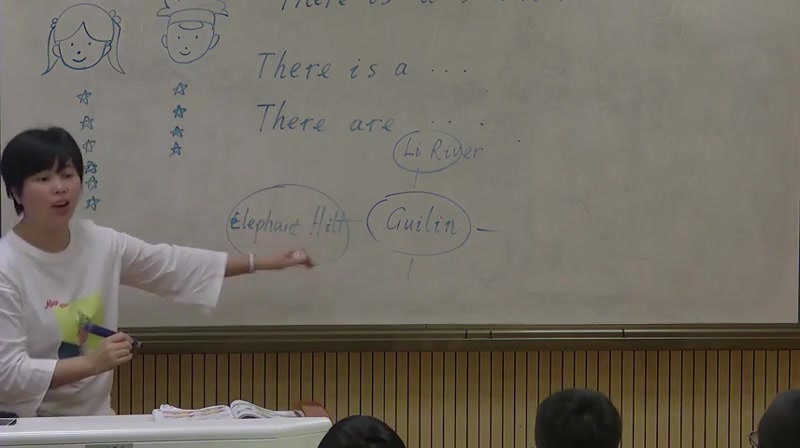 There is a
There is a ...
There are ...
Li River
Elephant Hill
Guilin